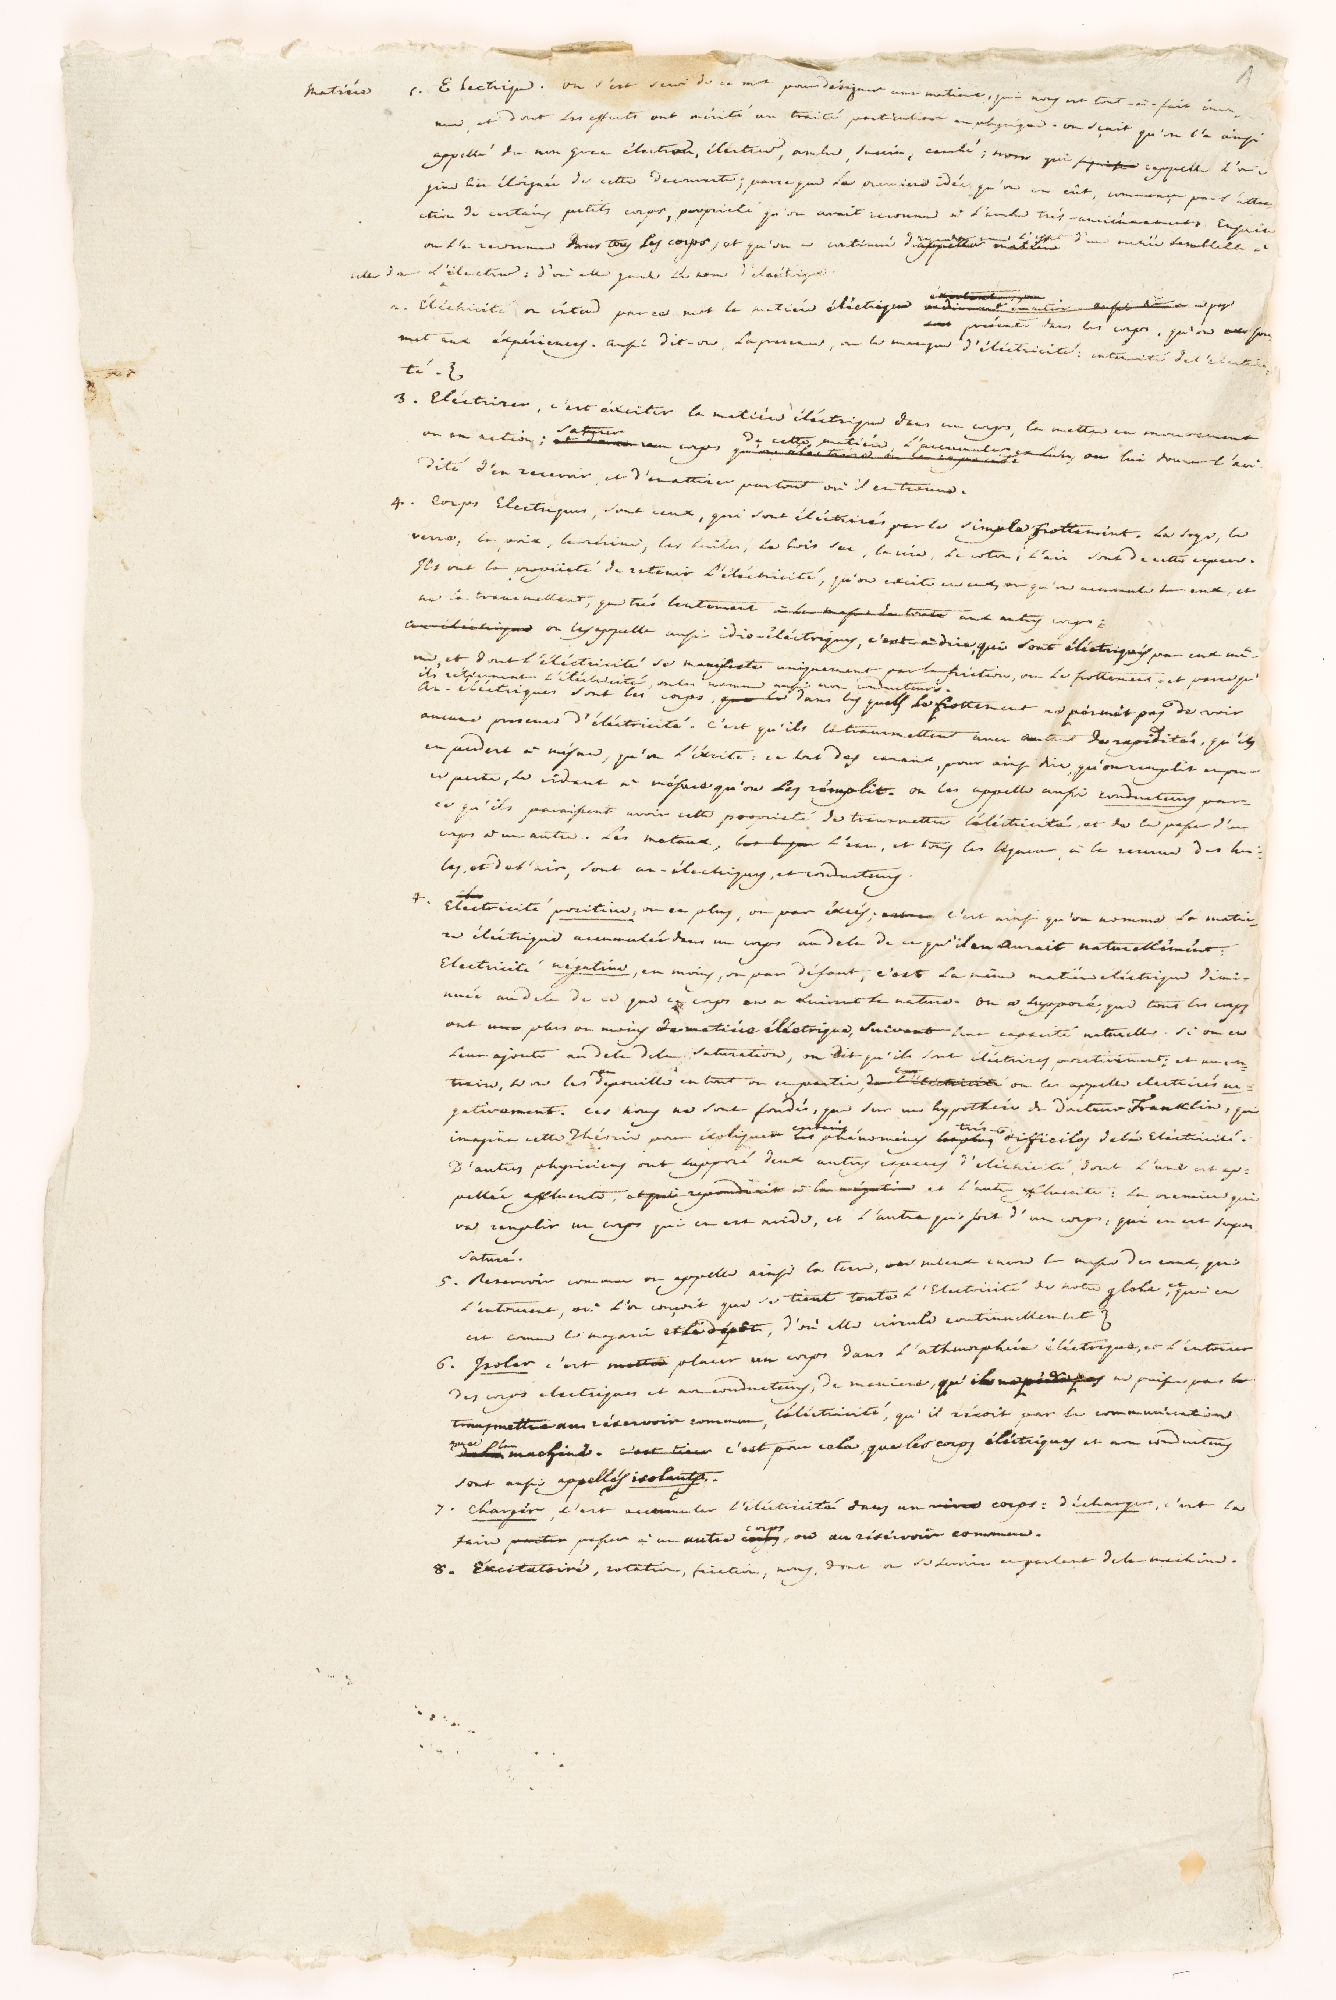 Matiére 1. Electrique. on s'est servi de ce mot pour désigner une matiere, qui nous est tout-à-fait
nue, et dont les effects ont mérité un traité particulier en physique. on sçait qu'on l'a ainsi
appellé du nom grec électron, électre, ambre, succin, carabé; nom qui rappelle l'ori-
gine bien éloignée de cette decouverte; parceque la premiere idée, qu'on en eût, commença par l'attra-
ction de certains petits corps, propriété qu'on avait reconnue à l'ambre très-anciennement. Ensuite
on l'a reconnue dans tous les corps, et qu'on a continué d'appeller matiére d'une matiére semblable à
celle de l'électre: d'où elle garde le nom d'électrique.
2. Electricité on entend par ce mot la matiére éléctrique
présente dans les corps, qu'on sou-
met aux expériences. aussi dit-on, la presence, ou le manque d'éléctricité: intensité de l'électrici-
té.
3. Eléctriser, c'est éxciter la matiére éléctrique dans un corps, la mettre en mouvement
ou en action; saturer un corps de cette matiére, l'accumuler en lui, ou lui donner l'avi-
dité d'en recevoir, et d'en attirer partout où il en trouve.
4. Corps Electriques, sont ceux, qui sont éléctrisés par le simple frottement. La soye, le
verre, la poix, la résine, les huiles, le bois sec, la cire, le coton, l'air sont de cette espece.
Ils ont la propriété de retenir l'éléctricité, qu'on excite en eux, ou qu'on accumule en eux, et
ne la transmettent, que très lentement aux autres corps:
on les appelle aussi idio-éléctriques, c'est à dire, qui sont éléctriques par eux mê-
me, et dont l'éléctricité se manifeste uniquement par la friction, ou le frottement; et parcequ'
ils retiennent l'éléctricité, on les nomme aussi non conducteurs.
An-éléctriques sont les corps, dans les quels le frottement ne pérmét pas de voir
aucune presence d'éléctricité. C'est qu'ils la transmettent avec autant de rapidité, qu'ils
en perdent à mésure, qu'on l'éxcite: ce sont des canaux, pour ainsi dire, qu'on remplit en pure
perte, se vidant à mésure qu'on les rémplit. on les appelle aussi conducteurs par-
ce qu'ils paraissent avoir cette propriété de transmettre l'éléctricité, et de la passer d'un
corps à un autre. Les metaux, l'eau, et tous les liqueurs, à la reserve des hui-
les, et de l'air, sont an-éléctriques, et conducteurs.
4. Eléctricité positive, ou en plus, ou par éxcés; c'est ainsi qu'on nomme la matié-
re éléctrique accumulée dans un corps au dela de ce qu'il en aurait naturellément.
Electricité négative, en moins, ou par défaut; c'est la même matiére eléctrique dimi-
nuée au dela de ce que ce corps en a suivant sa nature. On a supposé, que tous les corps
ont plus ou moins de matiére éléctrique, suivant leur capacité naturelle. Si on en
leur ajoute au dela de la saturation, on dit qu'ils sont éléctrisés positivement; et au con-
traire, si on les dépouille en tout ou en partie, de l'éléctricité on les appelle electrisés né-
gativement. Ces noms ne sont fondés, que sur une hypothése de Docteur Franklin, qui
imagina cette théorie pour éxpliquer certains phénoménes très difficiles de la Eléctricité.
D'autres physiciens ont supposé deux autres especes d'eléctricité, dont l'une est ap-
pellée affluente, et l'autre effluente: la premiere qui
va remplir un corps qui en est avide, et l'autre qui sort d'un corps, qui en est super
saturé.
5. Reservoir commun on appelle ainsi la terre, ou mieux encore la masse des eaux, qui
l'entourent, où l'on conçoit que se tient toute l'Electricité de notre globe, et qui en
est comme le magasin et le dépôt, d'où elle circule continuellement
6. Isoler c'est placer un corps dans l'athmosphére éléctrique, et l'entourer
des corps electriques et non conducteurs, de maniere, qu'il ne puisse pas
transmettre au réservoir commun, l'éléctricité, qu'il réçoit par la communication
de la machine. c'est pour cela, que les corps éléctriques et non conducteurs
sont aussi appellés isolants.
7. Charger, c'est accumuler l'éléctricité dans un corps: décharger, c'est la
faire passer à un autre corps, ou au réservoir commun.
8. Excitatoire, rotation, friction, noms, dont on se servira en parlant de la machine.